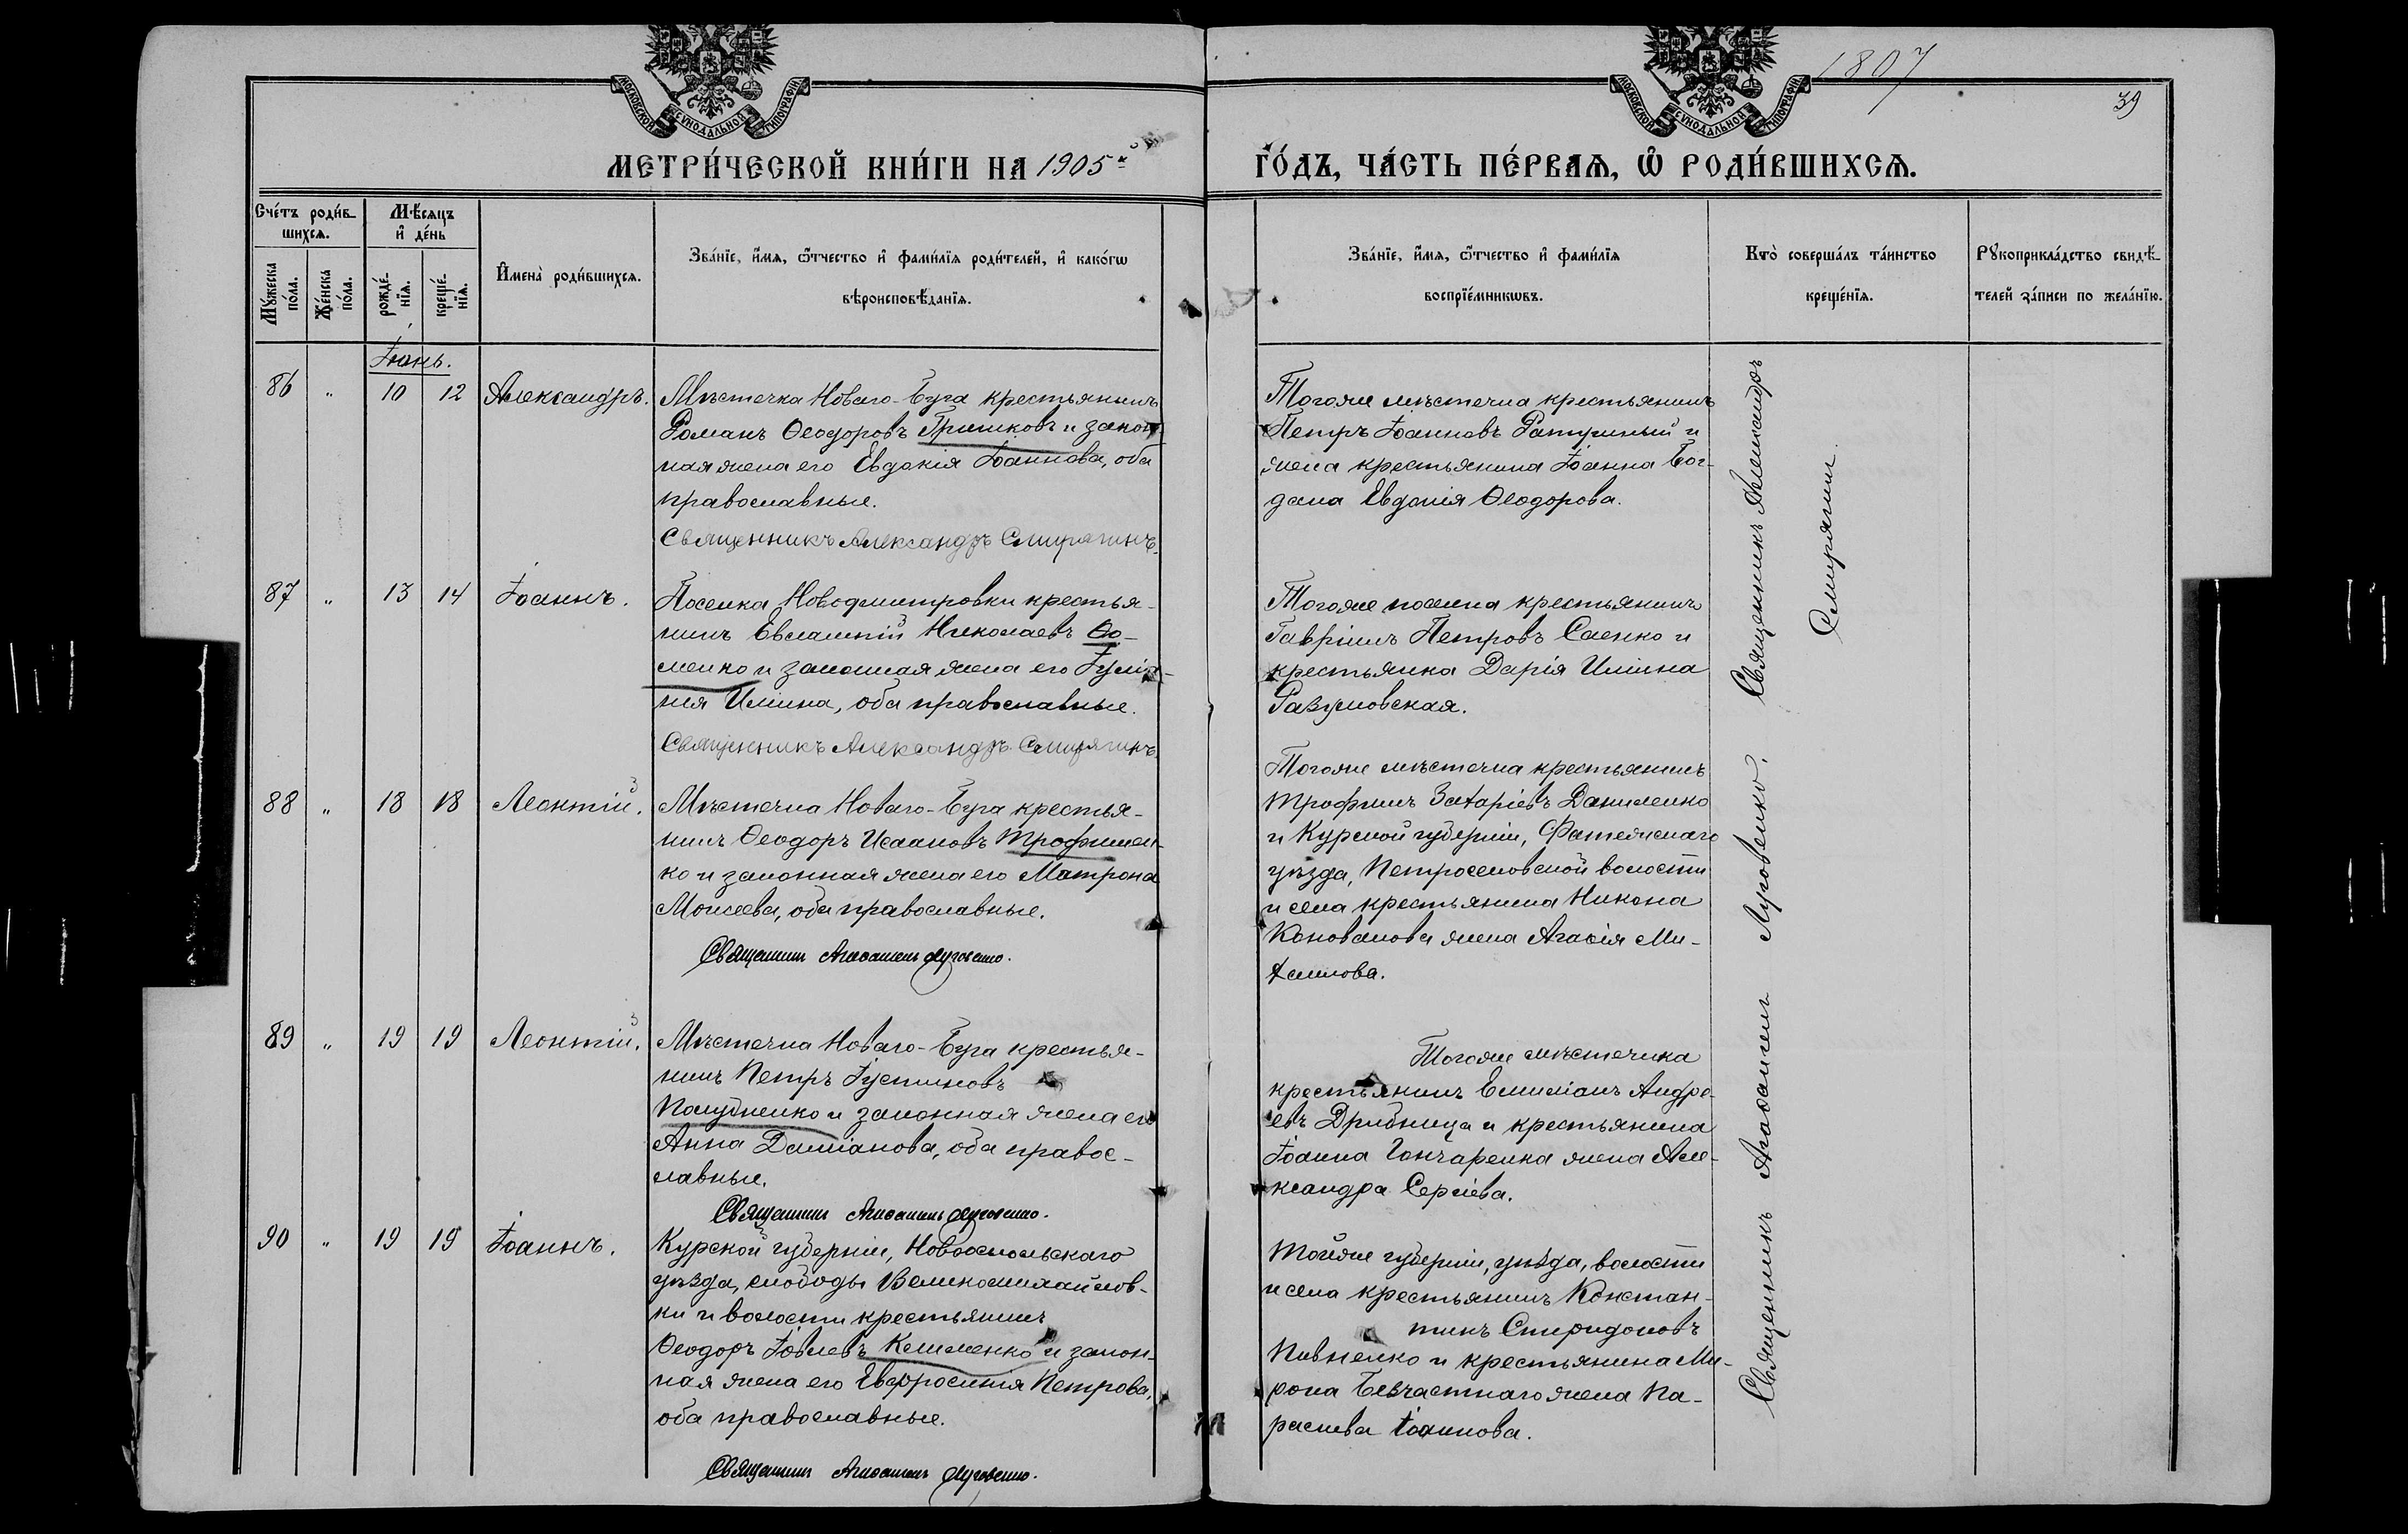 МОСКОВСКОЙ СѴНОДАЛЬНОЙ ТИПОГРАФІИ
МОСКОВСКОЙ СѴНОДАЛЬНОЙ ТИПОГРАФІИ
1807
39
МЕТРИ́ЧЕСКОЙ КНИ́ГИ НА 1905й
ГО́ДЪ, ЧА́СТЬ ПЕ́РВАѦ, Ѡ҆ РОДИ́ВШИХСѦ.
Сче́тъ роди́в-
шихсѧ.
Мѣ́сѧцъ
и҆ де́нь
Мꙋ́жеска
по́ла.
Же́нска
по́ла.
рожде́-
нїѧ.
креще́-
нїѧ.
И҆мена̀ роди́вшихсѧ.
Зва́нїе, и҆́мѧ, ѻ҆́тчество и҆ фами́лїѧ роди́телей, и҆ како́гѡ
вѣроисповѣ́данїѧ.
Зва́нїе, и҆́мѧ, ѻ҆́тчество и҆ фами́лїѧ
воспрїе́мникѡвъ.
Кто̀ соверша́лъ та́инство
креще́нїѧ.
Рꙋкоприкла́дство свидѣ́-
телей за́писи по жела́нїю.
Іюнь.
86 „ 10 12 Александръ.
Мѣстечка Новаго-Буга крестьянинъ
Романъ Ѳеодоровъ Гришковъ и закон-
ная жена его Евдокія Іоаннова, оба
православные.
Священникъ Александръ Смирягинъ.
Тогоже мѣстечка крестьянинъ
Петръ Іоанновъ Ратушный и
жена крестьянина Іоанна Бог-
дана Евдокія Ѳеодорова.
87 „ 13 14 Іоаннъ.
Поселка Новодмитровки крестья-
нинъ Евлампій Николаевъ Ѳо-
менко и законная жена его Іулiа-
нія Иліина, оба православные.
Священникъ Александръ Смирягинъ.
Тогоже поселка крестьянинъ
Гавріилъ Петровъ Саенко и
крестьянка Дарія Иліина
Разумовская.
88 „ 18 18 Леонтій.
Мѣстечка Новаго-Буга крестья-
нинъ Ѳеодоръ Исааковъ Трофимен-
ко и законная жена его Матрона
Моисеева, оба православные.
Священникъ Агаѳангелъ Луговенко.
Тогоже мѣстечка крестьянинъ
Трофимъ Захаріевъ Даниленко
и Курской губерніи, Фатежскаго
уѣзда, Петроселовской волости
и села крестьянина Никона
Коновалова жена Агаѳія Ми-
хаилова.
89 „ 19 19 Леонтій.
Мѣстечка Новаго-Буга крестья-
нинъ Петръ Іустиновъ
Полубненко и законная жена его
Анна Даміанова, оба правос-
лавные.
Священникъ Агаѳангелъ Луговенко.
Тогоже мѣстечка
крестьянинъ Емиліанъ Андре-
евъ Дрибница и крестьянина
Іоанна Гончаренка жена Але-
ксандра Сергіева.
90 „ 19 19 Іоаннъ.
Курской губерніи, Новооскольскаго
уѣзда, слободы Великомихайлов-
ки и волости крестьянинъ
Ѳеодоръ Іовлевъ Келеменко и закон-
ная жена его Евфросинія Петрова,
оба православные.
Священникъ Агаѳангелъ Луговенко.
Тойже губерніи, уѣзда, волости
и села крестьянинъ Констан-
тинъ Спиридоновъ
Пивненко и крестьянина Ми-
рона Безчастнаго жена Па-
раскева Іоаннова.
Священникъ Александръ
Смирягинъ
Священникъ Агаѳангелъ Луговенко.